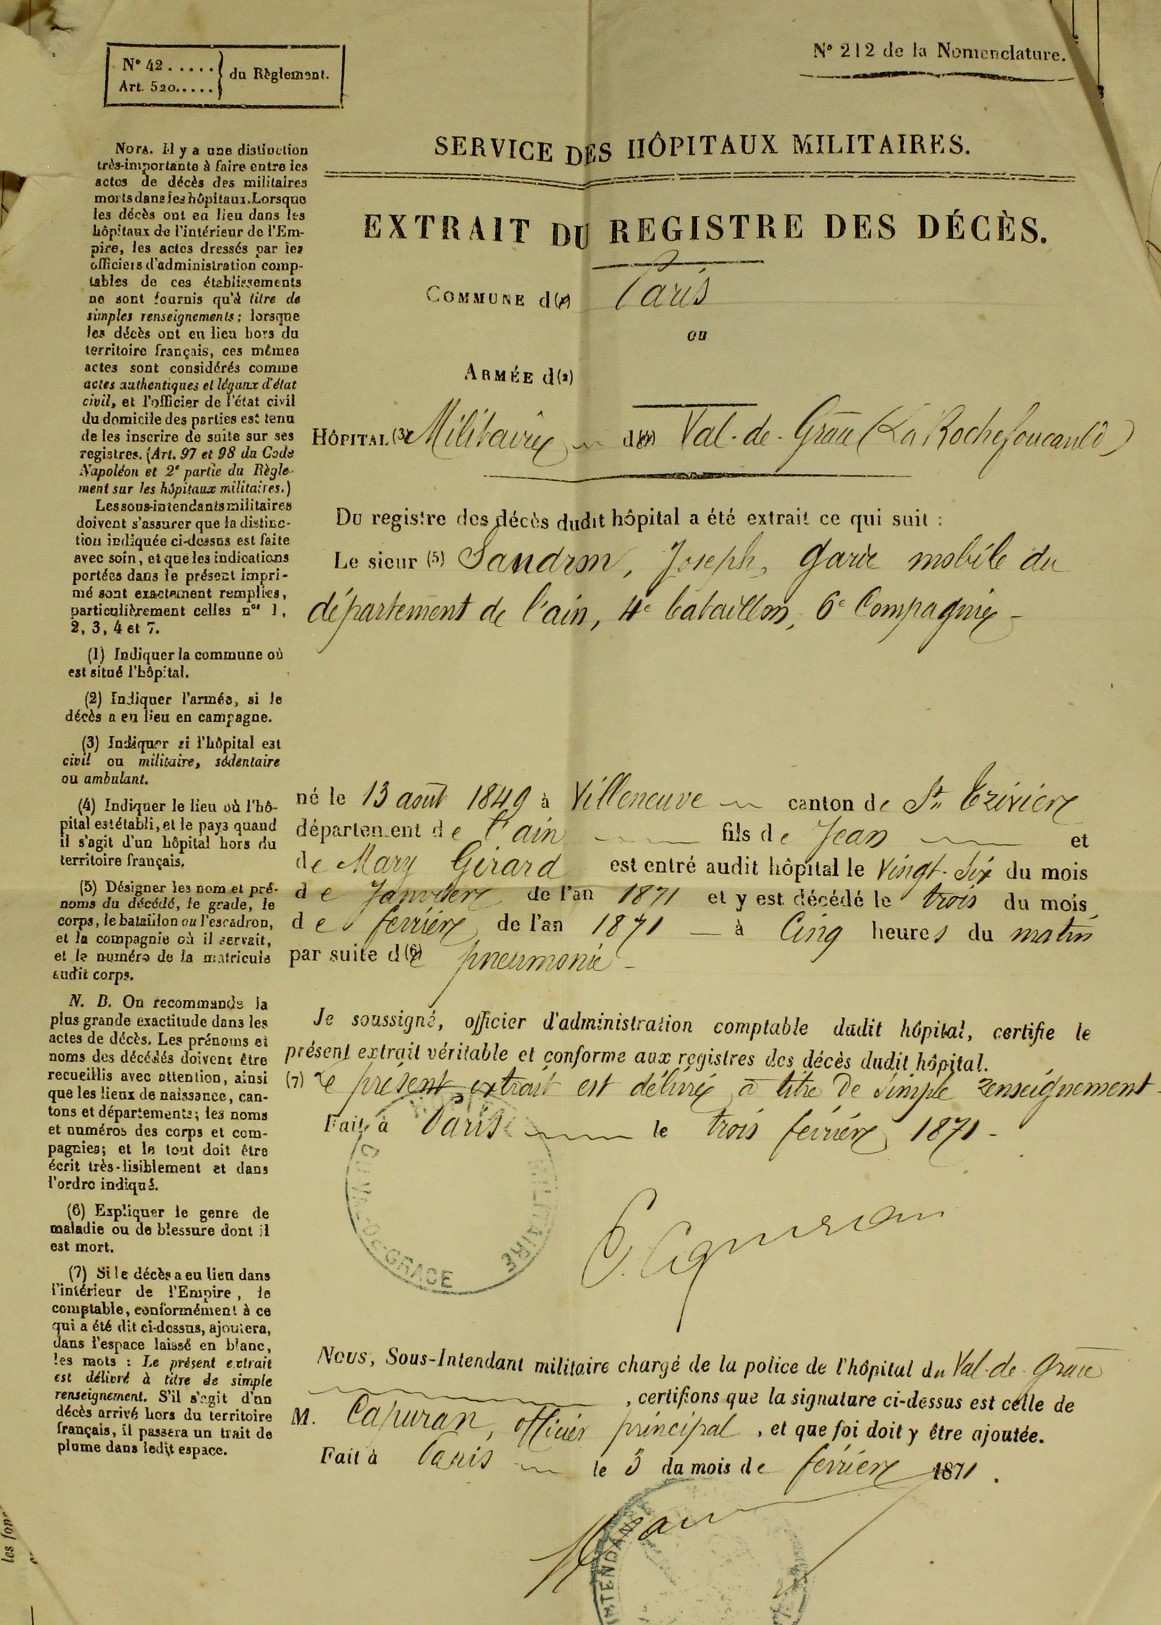 N° 42 ..... du Règlement.
Art. 520.....
N° 212 de la Nomenclature.
SERVICE DES HÔPITAUX MILITAIRES.
EXTRAIT DU REGISTRE DES DÉCÈS.
COMMUNE d(1) Paris
ou
ARMÉE d(2)
HÔPITAL (3) Militaire d(4) Val-de-Grâce (La Rochefoucauld)
Du registre des décès dudit hôpital a été extrait ce qui suit :
Le sieur (5) Joseph, garde mobile du
département de l'ain, 4e bataillon, 6e Compagnie
né le 13 août 1849 à Villeneuve canton de St Trivier
département de l'ain fils de Jean et
de Mary Girard est entré audit hôpital le vingt-six du mois
de Janvier de l'an 1871 et y est décédé le trois du mois
de février de l'an 1871 à Cinq heures du matin
par suite d(6) pneumonie
Je soussigné, officier d'administration comptable dudit hôpital, certifie le
présent extrait véritable et conforme aux registres des décès dudit hôpital.
(7) Le présent extrait est délivré à titre de simple renseignement
Fait à Paris le trois février 1871
HÔPITAL MILITAIRE DU VAL-DE-GRACE
Nous, Sous-Intendant militaire chargé de la police de l'hôpital du Val-de-Grâce
, certifions que la signature ci-dessus est celle de
M. Capuran, officier principal, et que foi doit y être ajoutée.
Fait à Paris le 3 du mois de février 1871.
INTENDANCE
NOTA. Il y a une distinction
très-importante à faire entre les
actes de décès des militaires
morts dans les hôpitaux. Lorsque
les décès ont eu lieu dans les
hôpitaux de l'intérieur de l'Em-
pire, les actes dressés par les
officiers d'administration comp-
tables de ces établissements
ne sont fournis qu'à titre de
simples renseignements; lorsque
les décès ont eu lieu hors du
territoire français, ces mêmes
actes sont considérés comme
actes authentiques et légaux d'état
civil, et l'officier de l'état civil
du domicile des parties est tenu
de les inscrire de suite sur ses
registres. (Art. 97 et 98 du Code
Napoléon et 2e partie du Règle-
ment sur les hôpitaux militaires.)
Les sous-intendants militaires
doivent s'assurer que la distinc-
tion indiquée ci-dessus est faite
avec soin, et que les indications
portées dans le présent impri-
mé sont exactement remplies,
particulièrement celles nos 1,
2, 3, 4 et 7.
(1) Indiquer la commune où
est situé l'hôpital.
(2) Indiquer l'armée, si le
décès a eu lieu en campagne.
(3) Indiquer si l'hôpital est
civil ou militaire, sédentaire
ou ambulant.
(4) Indiquer le lieu où l'hô-
pital est établi, et le pays quand
il s'agit d'un hôpital hors du
territoire français.
(5) Désigner les nom et pré-
noms du décédé, le grade, le
corps, le bataillon ou l'escadron,
et la compagnie où il servait,
et le numéro de la matricule
audit corps.
N. B. On recommande la
plus grande exactitude dans les
actes de décès. Les prénoms et
noms des décédés doivent être
recueillis avec attention, ainsi
que les lieux de naissance, can-
tons et départements; les noms
et numéros des corps et com-
pagnies; et le tout doit être
écrit très-lisiblement et dans
l'ordre indiqué.
(6) Expliquer le genre de
maladie ou de blessure dont il
est mort.
(7) Si le décès a eu lieu dans
l'intérieur de l'Empire, le
comptable, conformément à ce
qui a été dit ci-dessus, ajoutera,
dans l'espace laissé en blanc,
les mots : Le présent extrait
est délivré à titre de simple
renseignement. S'il s'agit d'un
décès arrivé hors du territoire
français, il passera un trait de
plume dans ledit espace.